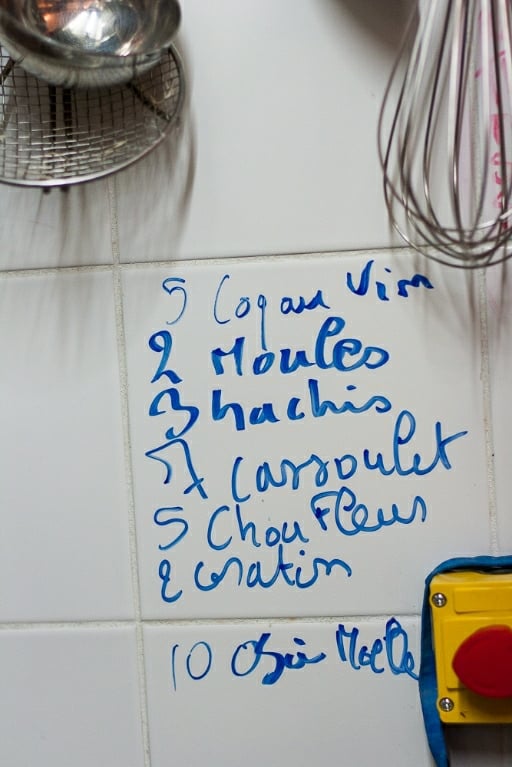 5 Coq au Vin
2 Moules
3 hachis
Cassoulet
5 Chou Fleurs
2 Gratin
10 Os à Moelle